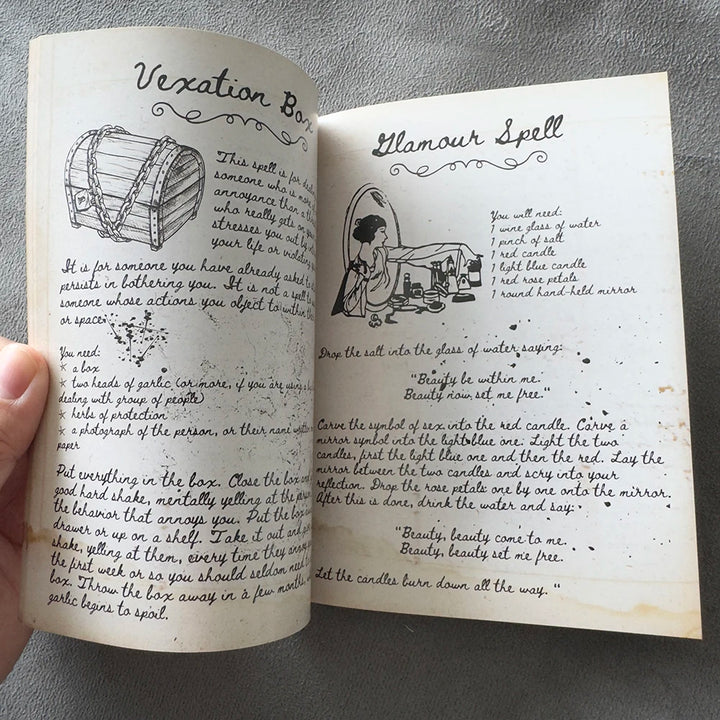 Vexation Box
This spell is for
someone who is
annoyance than a
who really gets on
stresses you out by
your life or
It is for someone you have already asked to
persists in bothering you. It is not a spell
someone whose actions you object to within
or space.
You need:
* a box
* two heads of garlic (or more, if you are using a
dealing with group of people)
* herbs of protection
* a photograph of the person, or their name written
paper
Put everything in the box. Close the box and
good hard shake, mentally yelling at the
the behavior that annoys you. Put the box
drawer or up on a shelf. Take it out and
shake, yelling at them, every time they
the first week or so you should seldom need
box. Throw the box away in a few months,
garlic begins to spoil.
Glamour Spell
You will need:
1 wine glass of water
1 pinch of salt
1 red candle
1 light blue candle
1 red rose petals
1 round hand-held mirror
Drop the salt into the glass of water saying:
"Beauty be within me.
Beauty now set me free."
Carve the symbol of sex into the red candle. Carve a
mirror symbol into the light blue one. Light the two
candles, first the light blue one and then the red. Lay the
mirror between the two candles and scry into your
reflection. Drop the rose petals one by one onto the mirror.
After this is done, drink the water and say:
"Beauty, beauty come to me.
Beauty, beauty set me free.
Let the candles burn down all the way. "